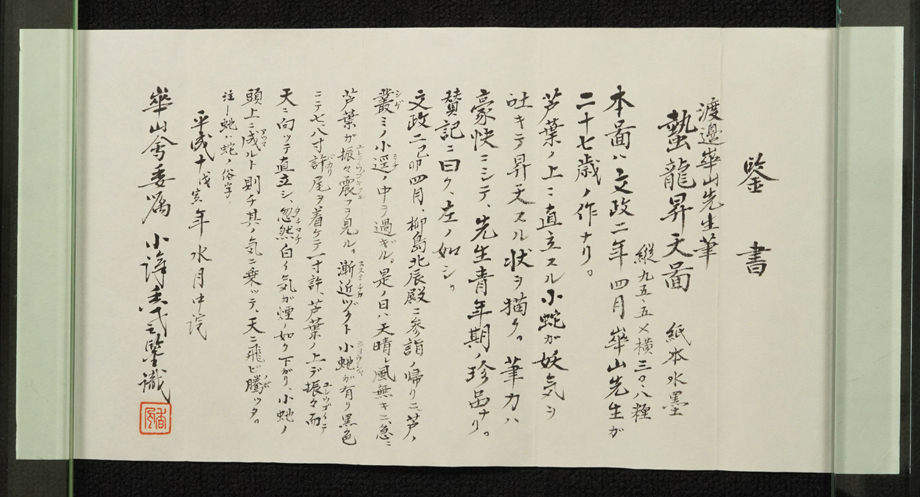 鑒書
渡邉崋山先生筆
蟄龍昇天図 紙本水墨
縦九五・五×横三〇・八糎
本図ハ文政二年四月崋山先生が
二十七歳ノ作ナリ。
芦葉ノ上ニ直立スル小蛇が妖気ヲ
吐キテ昇天スル状ヲ猫ク。筆力ハ
豪快ニシテ、先生青年期ノ珍品ナリ。
賛記ニ曰ク、左ノ如シ。
文政二己卯四月、柳島北辰殿ニ参詣ノ帰リニ、芦ノ
叢ミノ小逕ノ中ヲ過ギル。是ノ日ハ天晴レ風無キニ、急ニ
芦葉ガ振々震フヲ見ル。漸近ヅクト小虵が有リ黒色
ニテ七八寸許、尾ヲ着ケテ一寸許、芦葉ノ上デ振々而
天ニ向ッテ直立シ、忽然白イ気が煙ノ如ク下がり、小虵ノ
頭上ニ成ルト則チ其ノ気ニ乗ッテ、天ニ飛ビ騰ッタ。
注―虵、蛇ノ俗字。
平成十戊寅年水月中浣
崋山會委嘱 小澤
鑒識